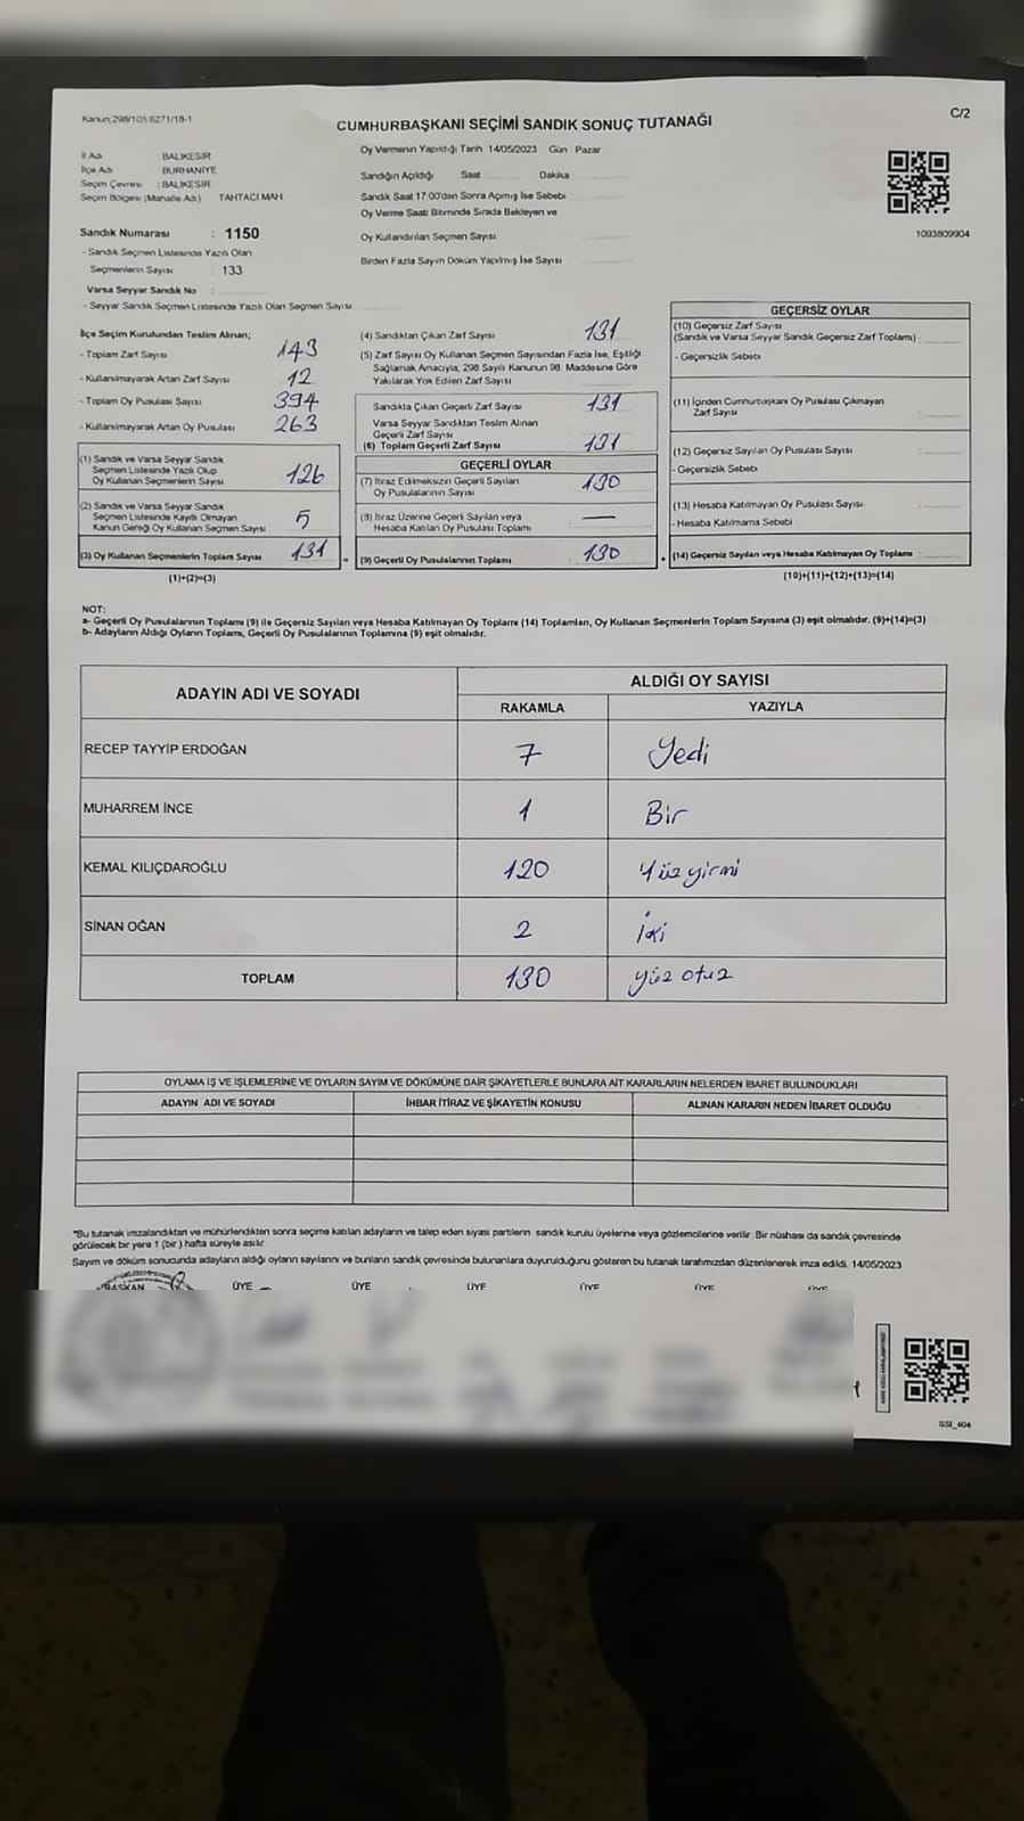 Kanun;298/101/6271/18-1
C/2
CUMHURBAŞKANI SEÇİMİ SANDIK SONUÇ TUTANAĞI
Oy Vermenin Yapıldığı Tarih 14/05/2023 Gün Pazar
İl Adı BALIKESİR
İlçe Adı BURHANİYE
Seçim Çevresi : BALIKESİR
Seçim Bölgesi (Mahalle Adı) TAHTACI MAH
Sandık Numarası : 1150
- Sandık Seçmen Listesinde Yazılı Olan
Seçmenlerin Sayısı : 133
Varsa Seyyar Sandık No :
- Seyyar Sandık Seçmen Listesinde Yazılı Olan Seçmen Sayısı
Sandığın Açıldığı Saat Dakika
Sandık Saat 17:00'dan Sonra Açılmış İse Sebebi
Oy Verme Saati Bitiminde Sırada Bekleyen ve
Oy Kullandırılan Seçmen Sayısı
Birden Fazla Sayım Döküm Yapılmış İse Sayısı
1093809904
İlçe Seçim Kurulundan Teslim Alınan;
- Toplam Zarf Sayısı 143
- Kullanılmayarak Artan Zarf Sayısı 12
- Toplam Oy Pusulası Sayısı 394
- Kullanılmayarak Artan Oy Pusulası 263
(1) Sandık ve Varsa Seyyar Sandık
Seçmen Listesinde Yazılı Olup
Oy Kullanan Seçmenlerin Sayısı 126
(2) Sandık ve Varsa Seyyar Sandık
Seçmen Listesinde Kayıtlı Olmayan
Kanun Gereği Oy Kullanan Seçmen Sayısı 5
(3) Oy Kullanan Seçmenlerin Toplam Sayısı 131 =
(1)+(2)=(3)
(4) Sandıktan Çıkan Zarf Sayısı 131
(5) Zarf Sayısı Oy Kullanan Seçmen Sayısından Fazla İse, Eşitliği
Sağlamak Amacıyla, 298 Sayılı Kanunun 98. Maddesine Göre
Yakılarak Yok Edilen Zarf Sayısı
Sandıkta Çıkan Geçerli Zarf Sayısı 131
Varsa Seyyar Sandıktan Teslim Alınan
Geçerli Zarf Sayısı
(6) Toplam Geçerli Zarf Sayısı 131
GEÇERLİ OYLAR
(7) İtiraz Edilmeksizin Geçerli Sayılan
Oy Pusulalarının Sayısı 130
(8) İtiraz Üzerine Geçerli Sayılan veya
Hesaba Katılan Oy Pusulası Toplamı —
(9) Geçerli Oy Pusulalarının Toplamı 130 +
GEÇERSİZ OYLAR
(10) Geçersiz Zarf Sayısı
(Sandık ve Varsa Seyyar Sandık Geçersiz Zarf Toplamı) :
- Geçersizlik Sebebi
(11) İçinden Cumhurbaşkanı Oy Pusulası Çıkmayan
Zarf Sayısı
(12) Geçersiz Sayılan Oy Pusulası Sayısı
- Geçersizlik Sebebi
(13) Hesaba Katılmayan Oy Pusulası Sayısı
- Hesaba Katılmama Sebebi
(14) Geçersiz Sayılan veya Hesaba Katılmayan Oy Toplamı :
(10)+(11)+(12)+(13)=(14)
NOT:
a- Geçerli Oy Pusulalarının Toplamı (9) ile Geçersiz Sayılan veya Hesaba Katılmayan Oy Toplamı (14) Toplamları, Oy Kullanan Seçmenlerin Toplam Sayısına (3) eşit olmalıdır. (9)+(14)=(3)
b- Adayların Aldığı Oyların Toplamı, Geçerli Oy Pusulalarının Toplamına (9) eşit olmalıdır.
ADAYIN ADI VE SOYADI
ALDIĞI OY SAYISI
RAKAMLA YAZIYLA
RECEP TAYYİP ERDOĞAN 7 Yedi
MUHARREM İNCE 1 Bir
KEMAL KILIÇDAROĞLU 120 Yüzyirmi
SİNAN OĞAN 2 İki
TOPLAM 130 yüz otuz
OYLAMA İŞ VE İŞLEMLERİNE VE OYLARIN SAYIM VE DÖKÜMÜNE DAİR ŞİKAYETLERLE BUNLARA AİT KARARLARIN NELERDEN İBARET BULUNDUKLARI
ADAYIN ADI VE SOYADI İHBAR İTİRAZ VE ŞİKAYETİN KONUSU ALINAN KARARIN NEDEN İBARET OLDUĞU
*Bu tutanak imzalandıktan ve mühürlendikten sonra seçime katılan adayların ve talep eden siyasi partilerin sandık kurulu üyelerine veya gözlemcilerine verilir. Bir nüshası da sandık çevresinde
görülecek bir yere 1 (bir) hafta süreyle asılır.
Sayım ve döküm sonucunda adayların aldığı oyların sayılarını ve bunların sandık çevresinde bulunanlara duyurulduğunu gösteren bu tutanak tarafımızdan düzenlenerek imza edildi. 14/05/2023
BAŞKAN ÜYE ÜYE ÜYE ÜYE ÜYE ÜYE